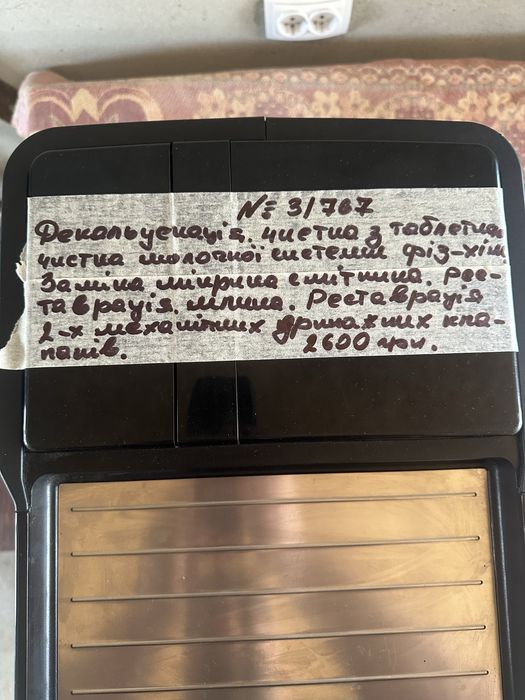 № 3/767
Декальцинація, чистка з таблетка,
чистка молочної системи фіз-хім
Заміна мірина смітника. Рес-
таврація. млина. Реставрація
2-х механічних дринажних кла-
панів. 2600 грн.